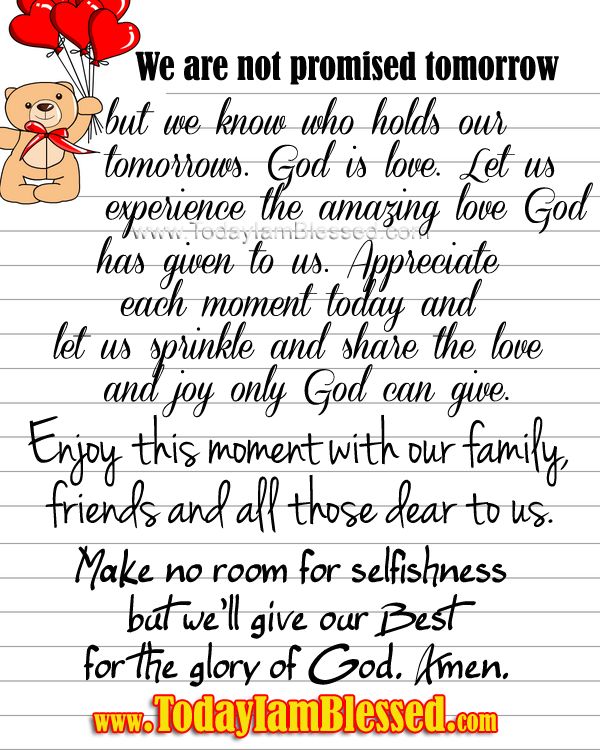 We are not promised tomorrow
but we know who holds our
tomorrows. God is love. Let us
experience the amazing love God
www.TodayIamBlessed.com
has given to us. Appreciate
each moment today and
let us sprinkle and share the love
and joy only God can give.
Enjoy this moment with our family,
friends and all those dear to us.
Make no room for selfishness
but we'll give our Best
for the glory of God. Amen.
www.TodayIamBlessed.com